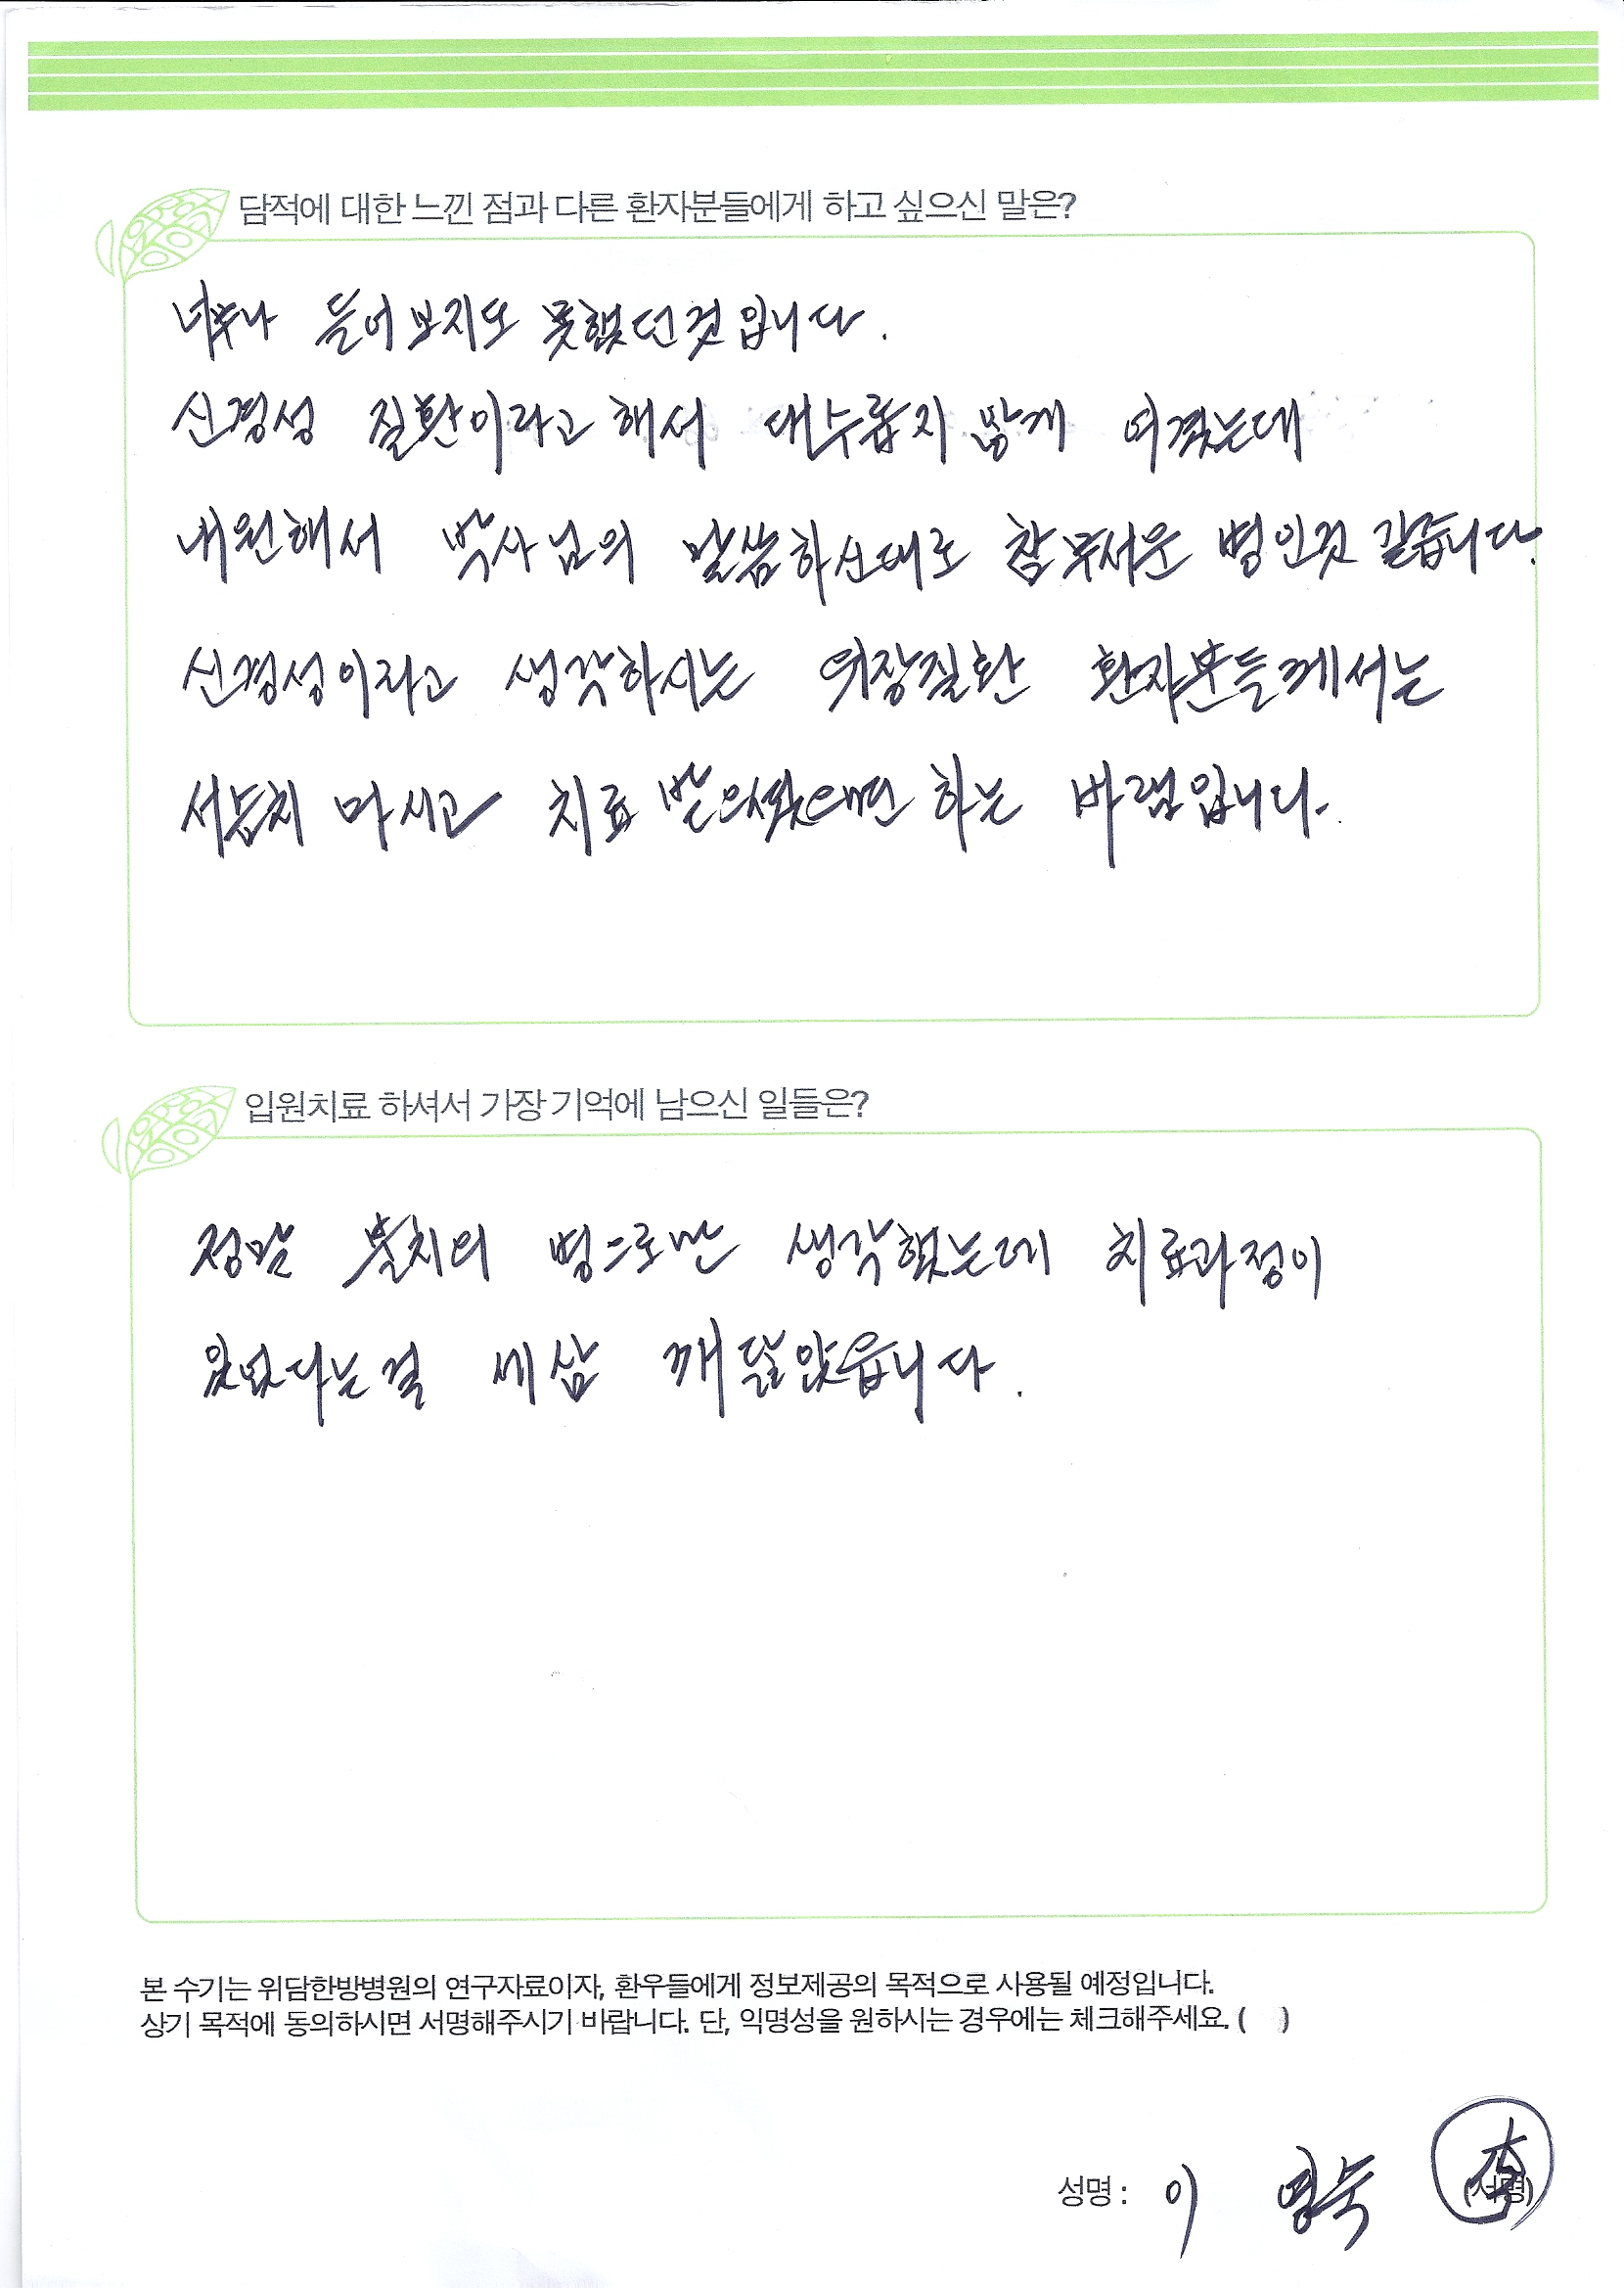 담적에 대한 느낀 점과 다른 환자분들에게 하고 싶으신 말은?
너무나 들어보지도 못했던것입니다.
신경성 질환이라고해서 대수롭지 않게 여겼는데
내원해서 박사님의 말씀하신대로 참 무서운 병인것 같습니다.
신경성이라고 생각하시는 위장질환 환자분들께서는
서슴치 마시고 치료 받으셨으면 하는 바램입니다.
입원치료 하셔서 가장 기억에 남으신 일들은?
정말 불치의 병으로만 생각했는데 치료과정이
있었다는걸 세삼 깨달았읍니다.
본 수기는 위담한방병원의 연구자료이자, 환우들에게 정보제공의 목적으로 사용될 예정입니다.
상기 목적에 동의하시면 서명해주시기 바랍니다. 단, 익명성을 원하시는 경우에는 체크해주세요. ( )
성명 : 이 영숙 (서명)